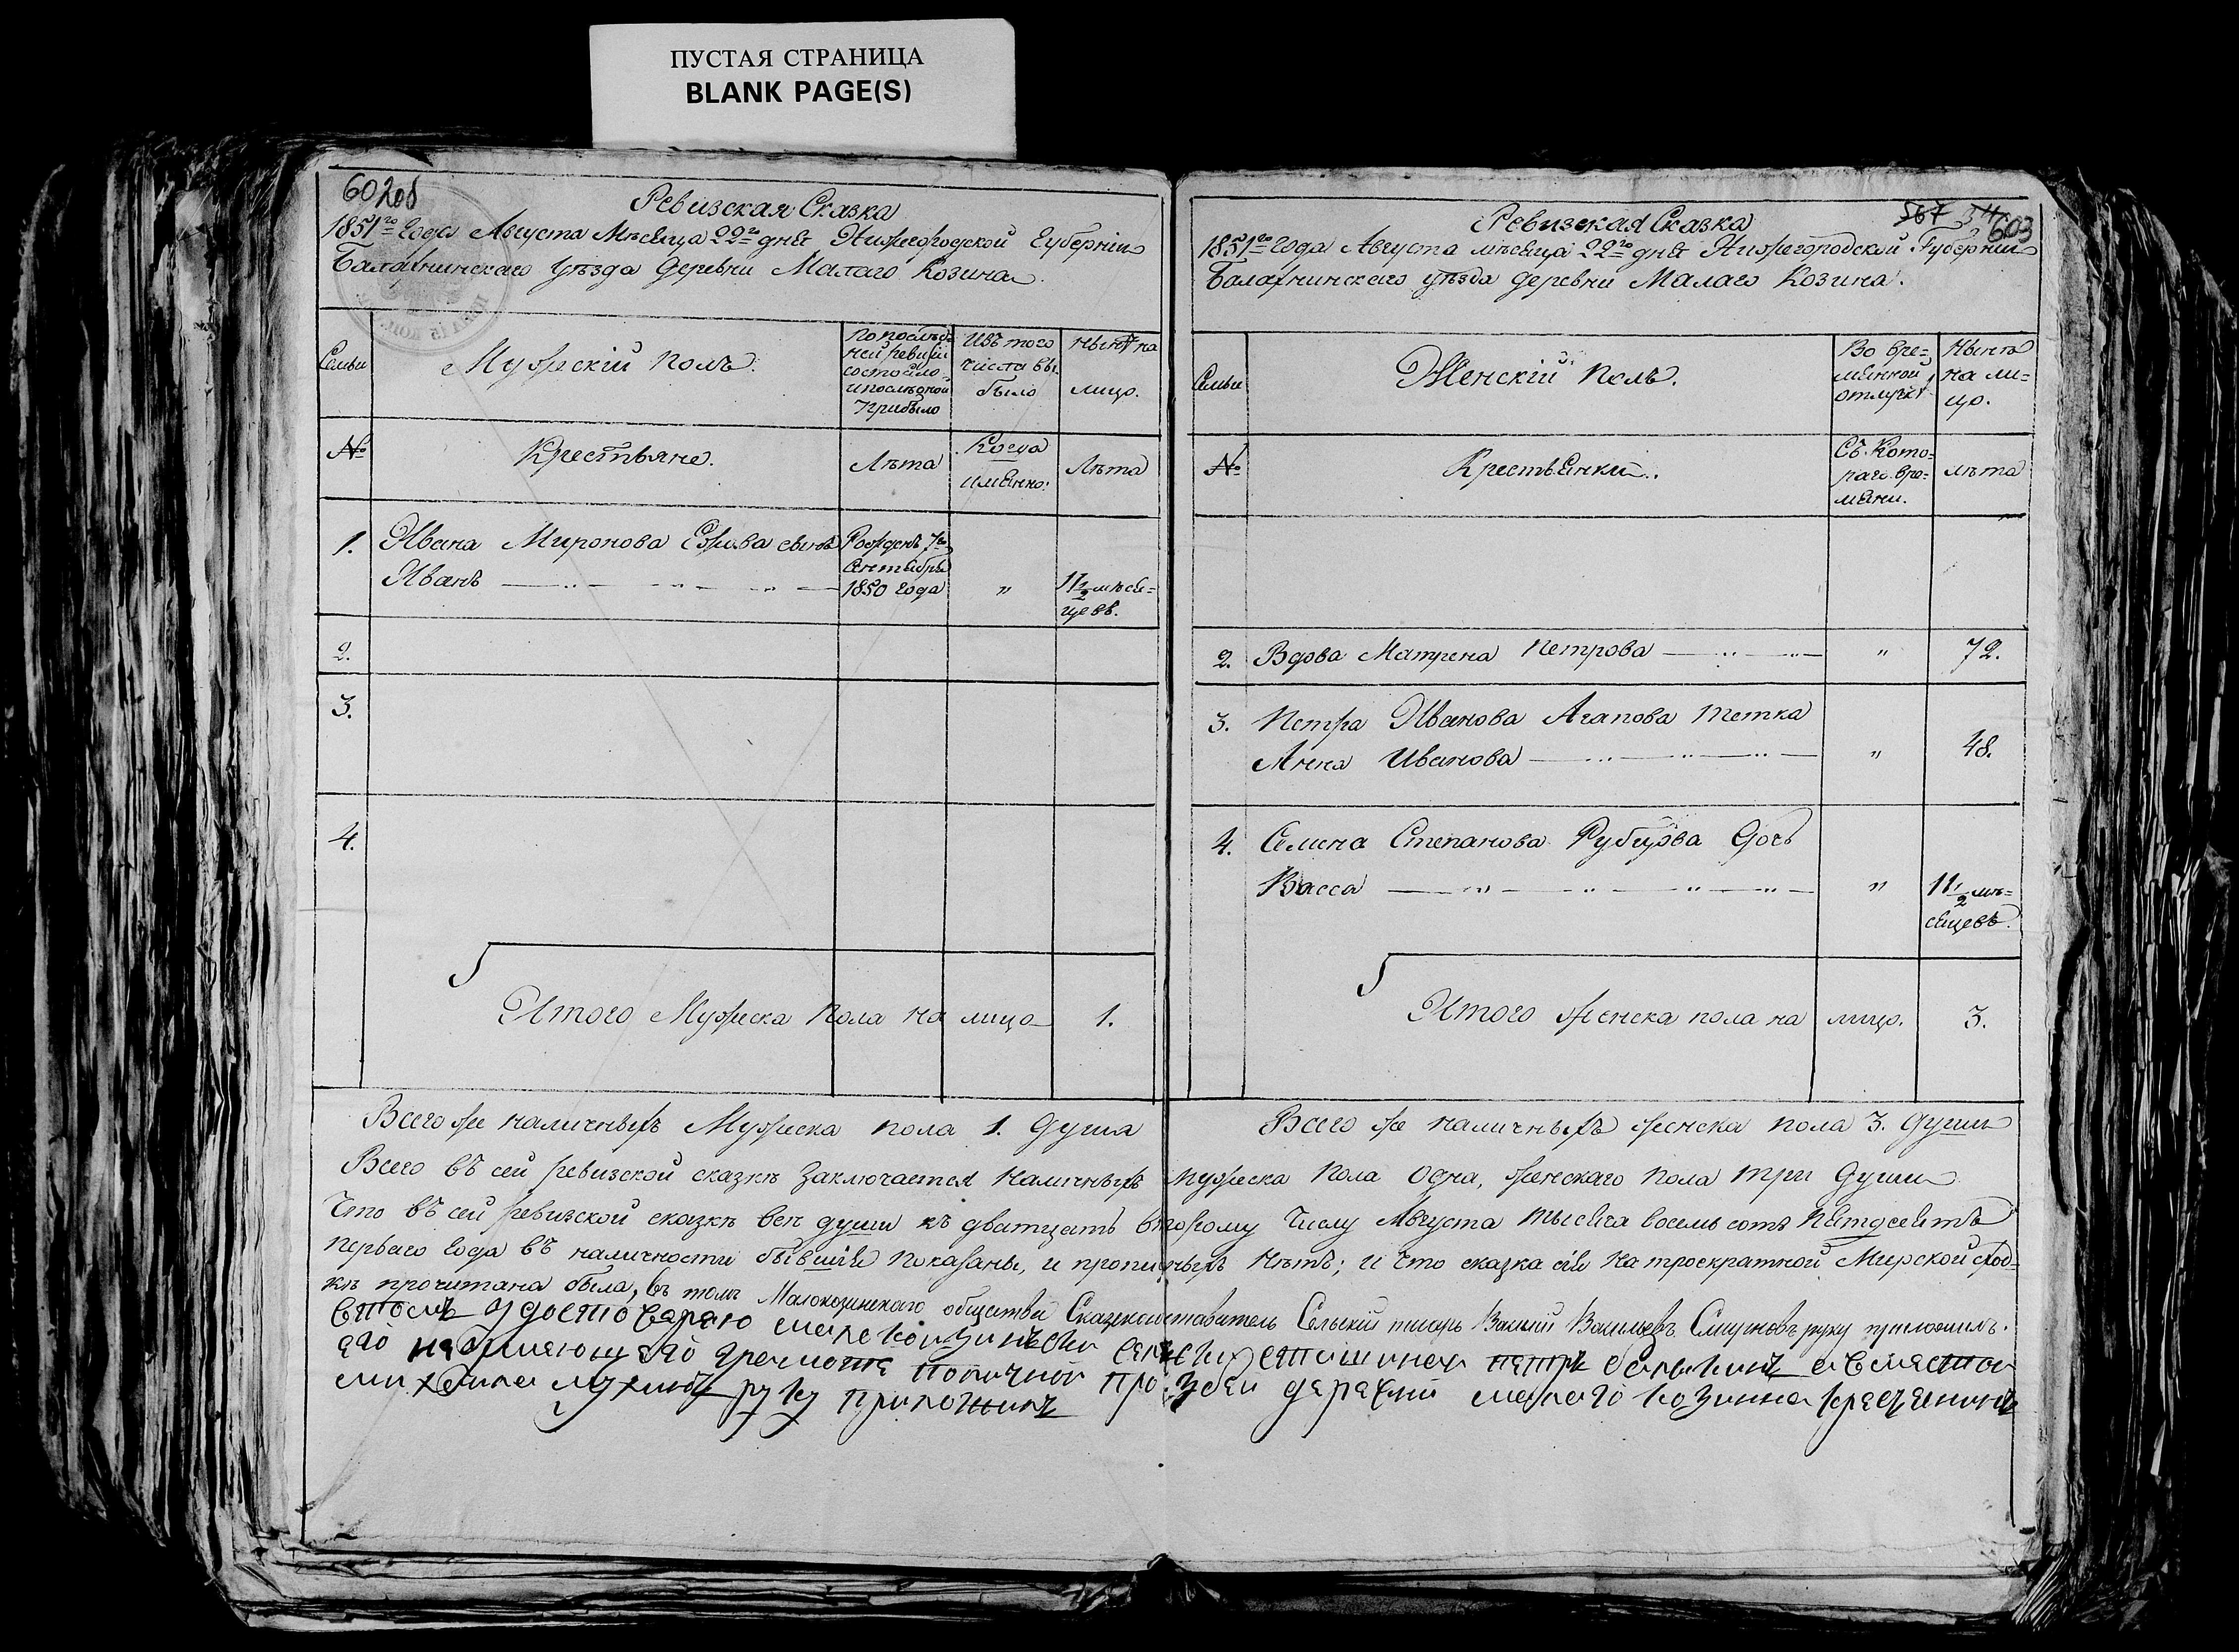 ПУСТАЯ СТРАНИЦА
BLANK PAGE(S)
602об
Ревизская Сказка
1851го Года Августа Мѣсяца 22го дня Нижегородской Губерніи
Балахнинскаго Уѣзда Деревни Малаго Козина.
Семьи
Мужескій полъ.
По послѣд-
ней ревизіи
состояло
и послѣ оной
прибыло
Изъ того
числа вы-
было
Нынѣ на
лицо.
№
Крестьяне.
Лѣта
Когда
имянно:
Лѣта
1. Ивана Миронова Ежова сынъ
Иванъ
Рожденъ 7го
Сентября
1850 года
"
11 1/2 мѣся-
цевъ.
2.
3.
4.
Итого Мужеска пола на лицо 1.
Всего же наличныхъ Мужеска пола 1. Душа
567
603
Ревизская Сказка
1851го Года Августа мѣсяца 22го дня Нижегородской Губерніи
Балахнинскаго уѣзда деревни Малаго Козина.
Семьи
Женскій полъ.
Во вре-
мянной
отлучкѣ
Нынѣ
на ли-
цо.
№
Крестьянки.
Съ Кото-
раго вре-
мяни.
лѣта
2. Вдова Матрена Петрова " 72.
3. Петра Иванова Агапова тетка
Анна Иванова " 48.
4. Семена Степанова Рубцова Дочь
Васса " 11 1/2 мѣ-
сяцевъ.
Итого женска пола на лицо. 3.
Всего же наличныхъ женска пола 3. Души
Всего въ сей ревизской сказкѣ заключается наличныхъ мужеска пола одна, женскаго пола три души
Что въ сей ревизской сказкѣ всѣ души къ дватцать второму числу Августа тысяча восемь сотъ пятдесятъ
перваго года въ наличности бывшія показаны, и прописныхъ нѣтъ; и что сказка сія на троекратной Мирской сход-
кѣ прочитана была, въ томъ Малокозинскаго общества Сказкосоставитель Сельскій писарь Василій Васильевъ Смирновъ руку приложилъ.
втомъ удостоверяю малокозинъски сельски старшина петръ
его неумеющаго грамоте поличной прозбе деревни малаго козина кресьянинъ
михаила руку приложилъ